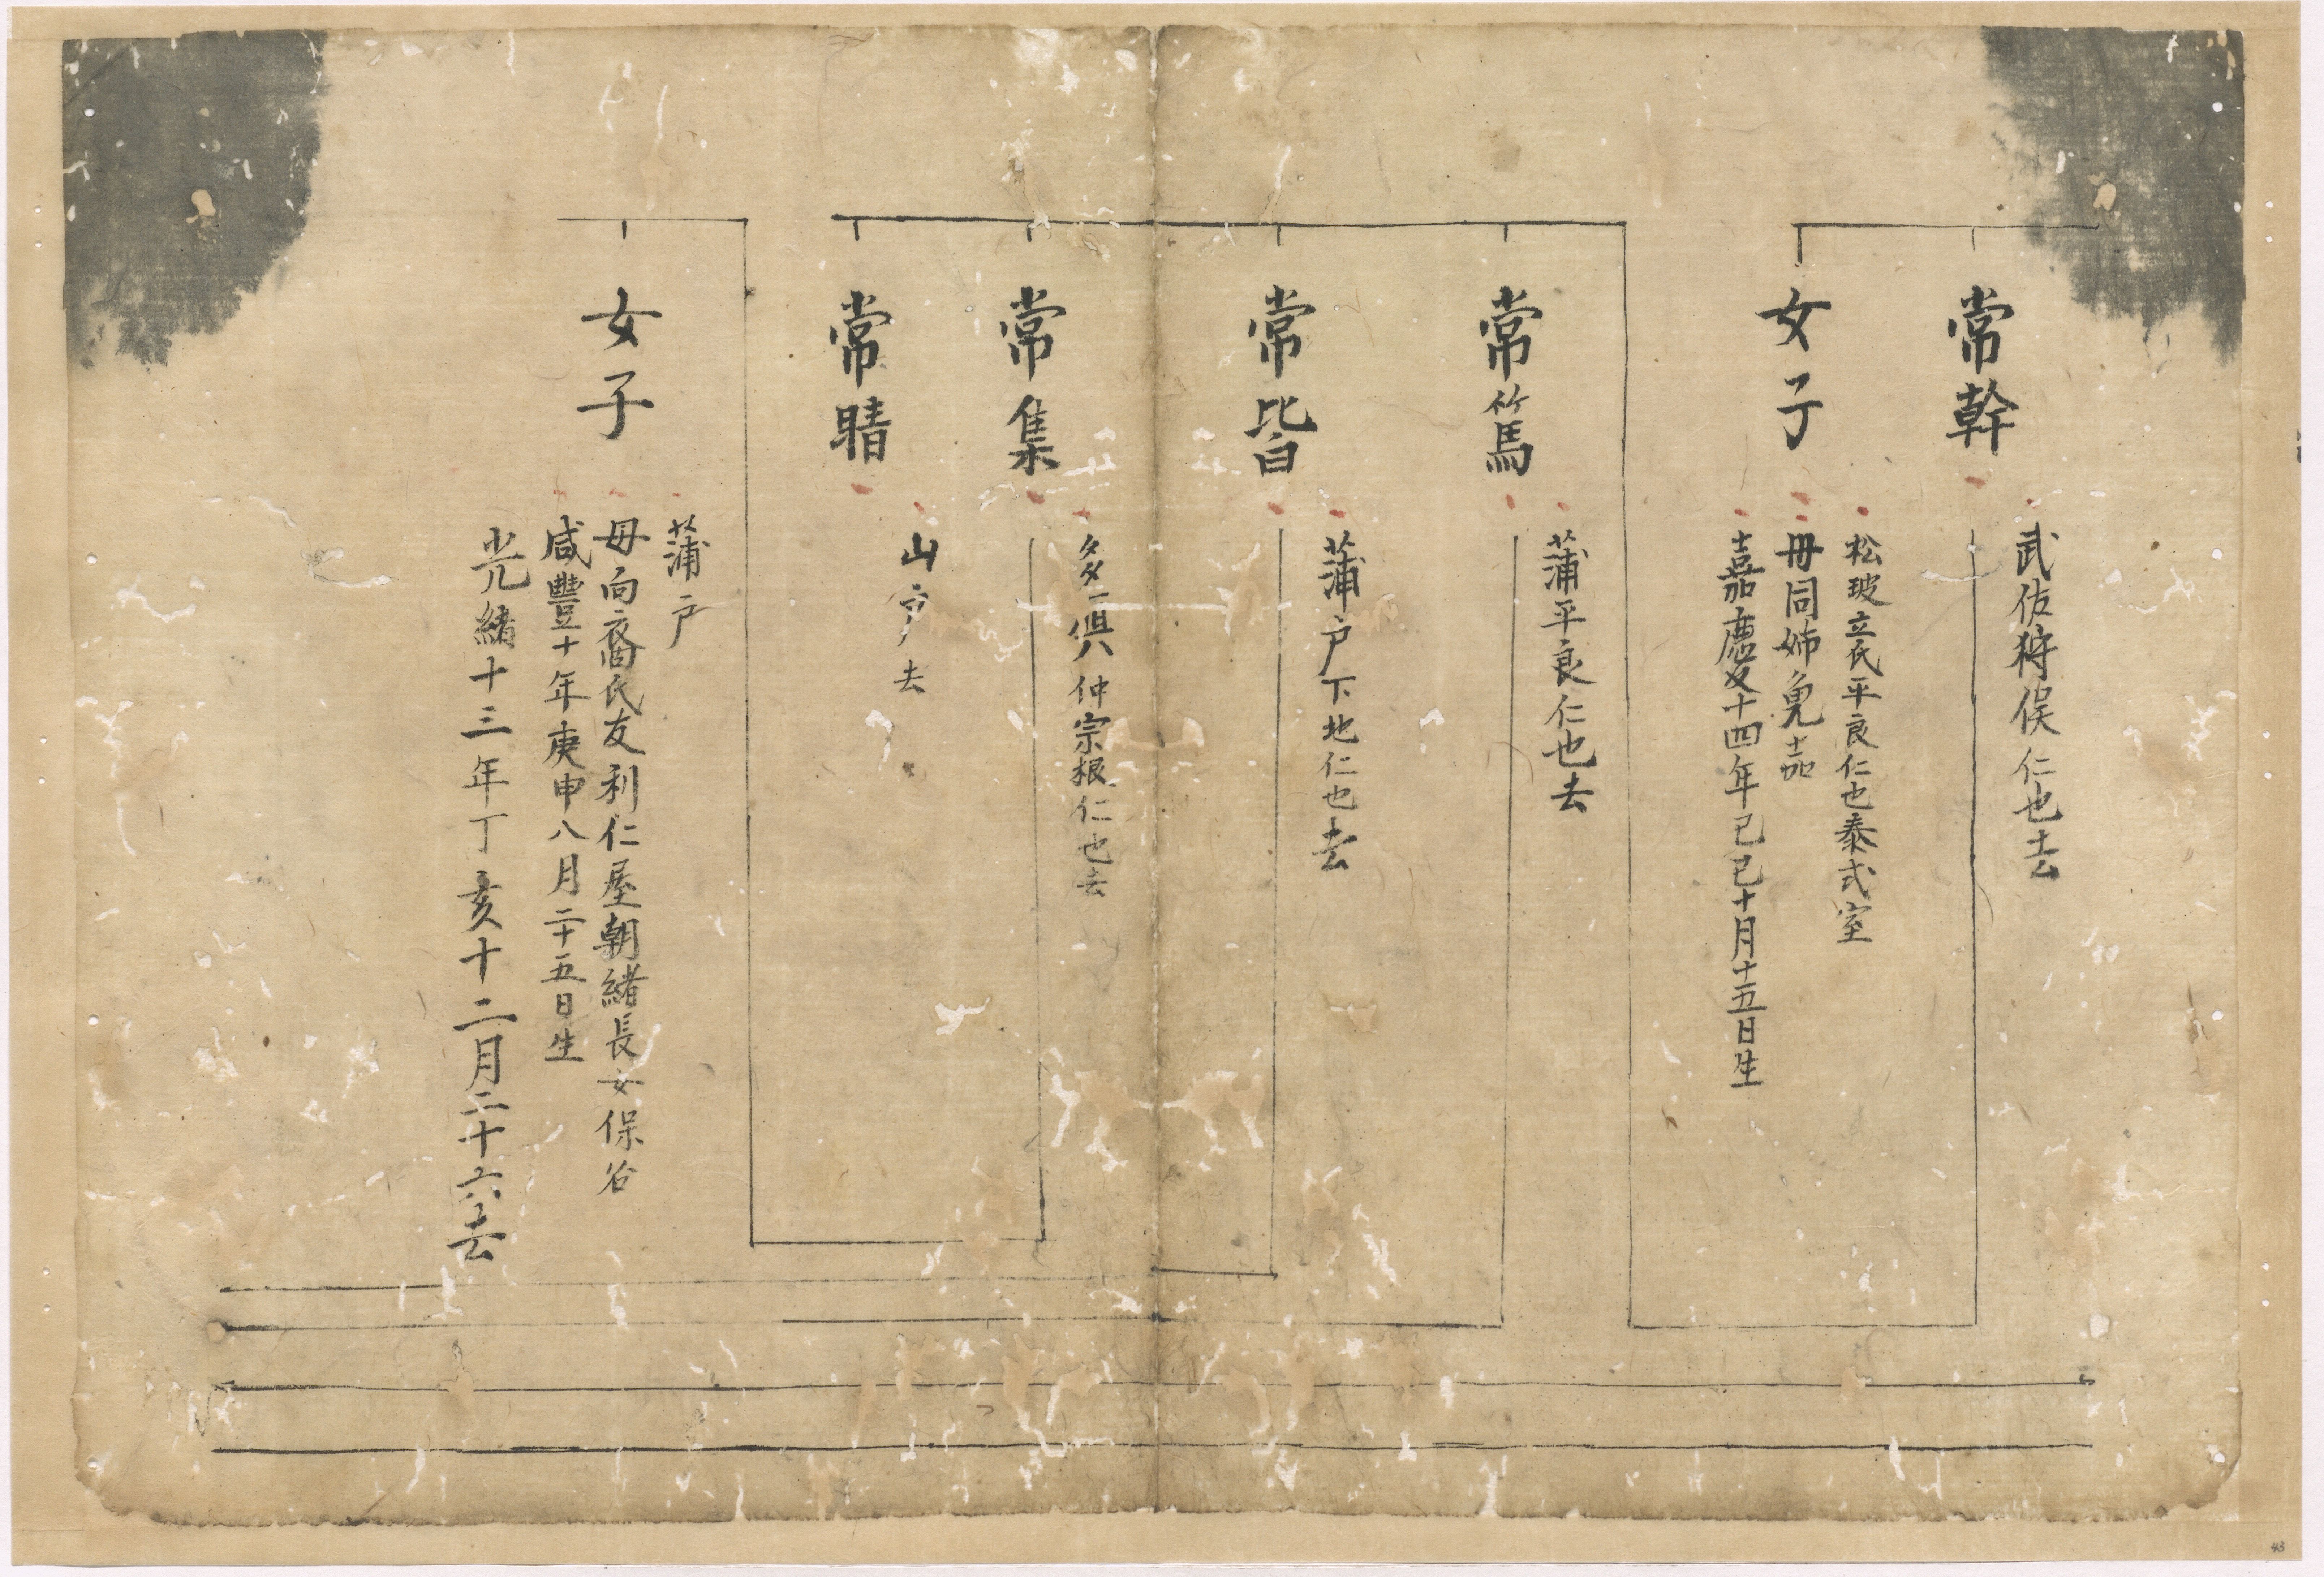 常幹
武佐狩俣仁也去
女子
松玻立氏平良仁也泰式室
母同姉免嘉
嘉慶十四年己巳十月十五日生
常篤
蒲平良仁也去
常皆
蒲戸下地仁也去
常集
多俱仲宗根仁也去
常晴
山戸去
女子
蒲戸
母向裔氏友利仁屋朝緒長女保谷
咸豐十年庚申八月二十五日生
光緒十三年丁亥十二月二十六去
43